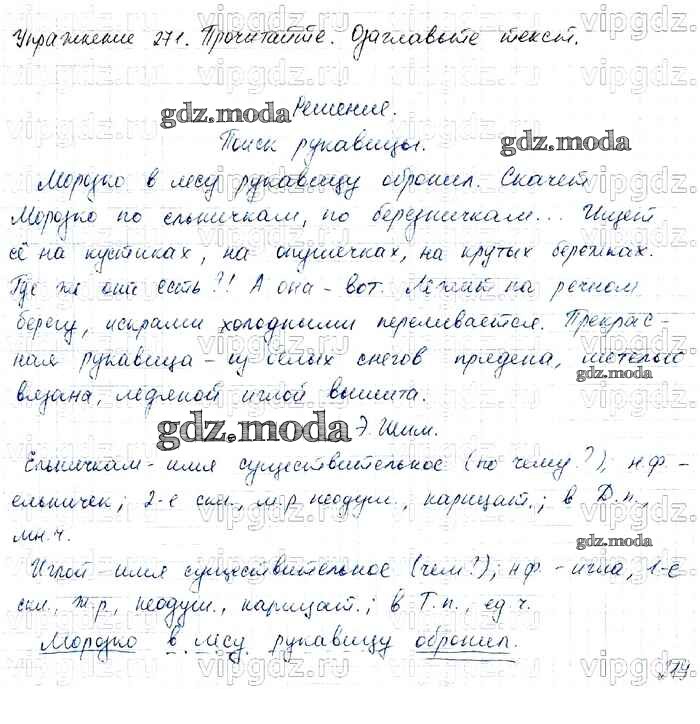 Упражнение 271. Прочитайте. Озаглавьте текст.
Решение.
gdz.moda
gdz.moda
Поиск рукавицы.
Морозко в лесу рукавицу обронил. Скачет
Морозко по ельничкам, по березничкам... Ищет
её на кустиках, на опушечках, на крутых бережках.
Где же она есть?!! А она - вот. Лежит на речном
берегу, искрами холодными переливается. Прекрас-
ная рукавица - из белых снегов прядена, метелью
gdz.moda
вязана, ледяной иглой вышита.
gdz.moda
Э. Шим.
Ельничкам - имя существительное (по чему?); н.ф. -
ельничек; 2-е скл., м.р. неодуш., нарицат.; в Д.п.,
мн.ч.
gdz.moda
Иглой - имя существительное (чем?); н.ф. - игла, 1-е
скл., ж.р., неодуш., нарицат.; в Т.п., ед.ч.
Морозко в лесу рукавицу обронил.
vipgdz.ru